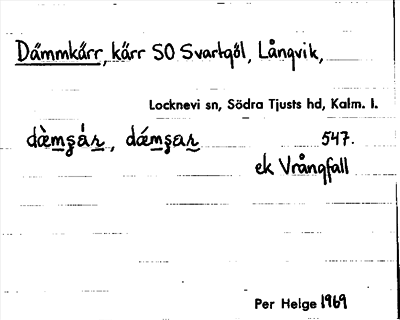 Dämmkärr, kärr SO Svartgöl, Långvik,
Locknevi sn, Södra Tjusts hd, Kalm. l.
547.
ek Vrångfall
Per Helge 1969